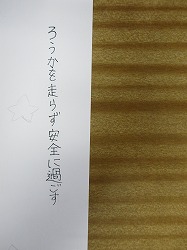 ろうかを走らず安全に過ごす